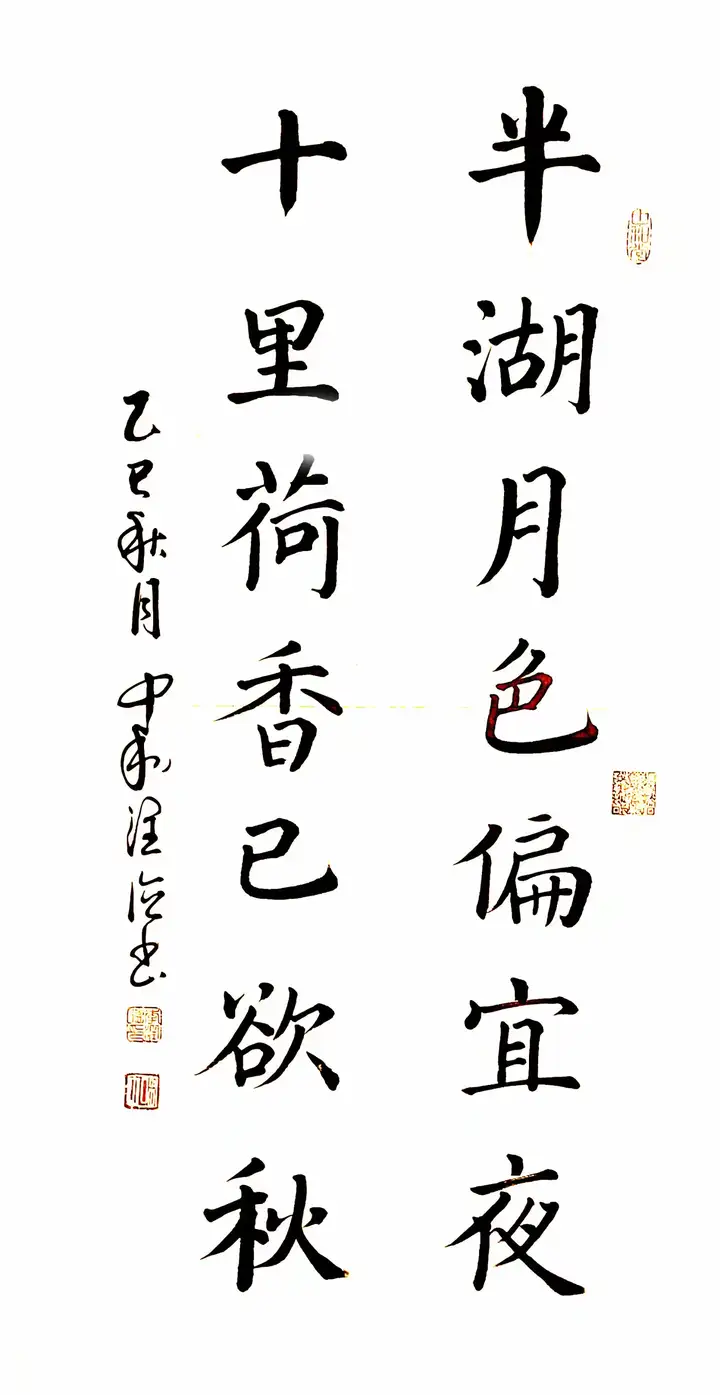 半湖月色偏宜夜
十里荷香已欲秋
乙巳秋月中和